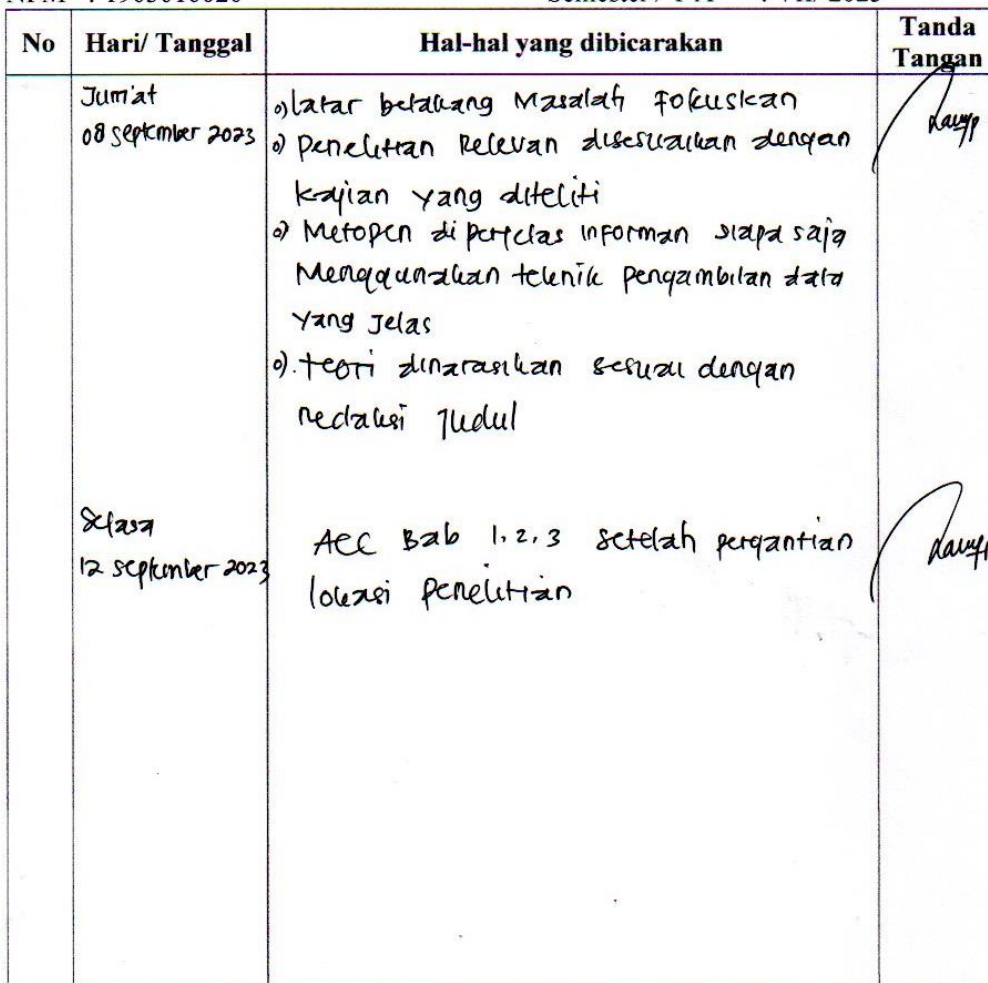 No Hari/ Tanggal Hal-hal yang dibicarakan Tanda Tangan
Jum'at
08 September 2023
o) latar belakang Masalah Fokuskan
o) Penelitian Relevan disesuaikan dengan
kajian yang diteliti
o) Metopen diperjelas informan siapa saja
Menggunakan teknik pengambilan data
yang Jelas
o). teori dinarasikan sesuai dengan
redaksi Judul
Selasa
12 September 2023
ACC Bab 1, 2, 3 setelah pergantian
lokasi penelitian